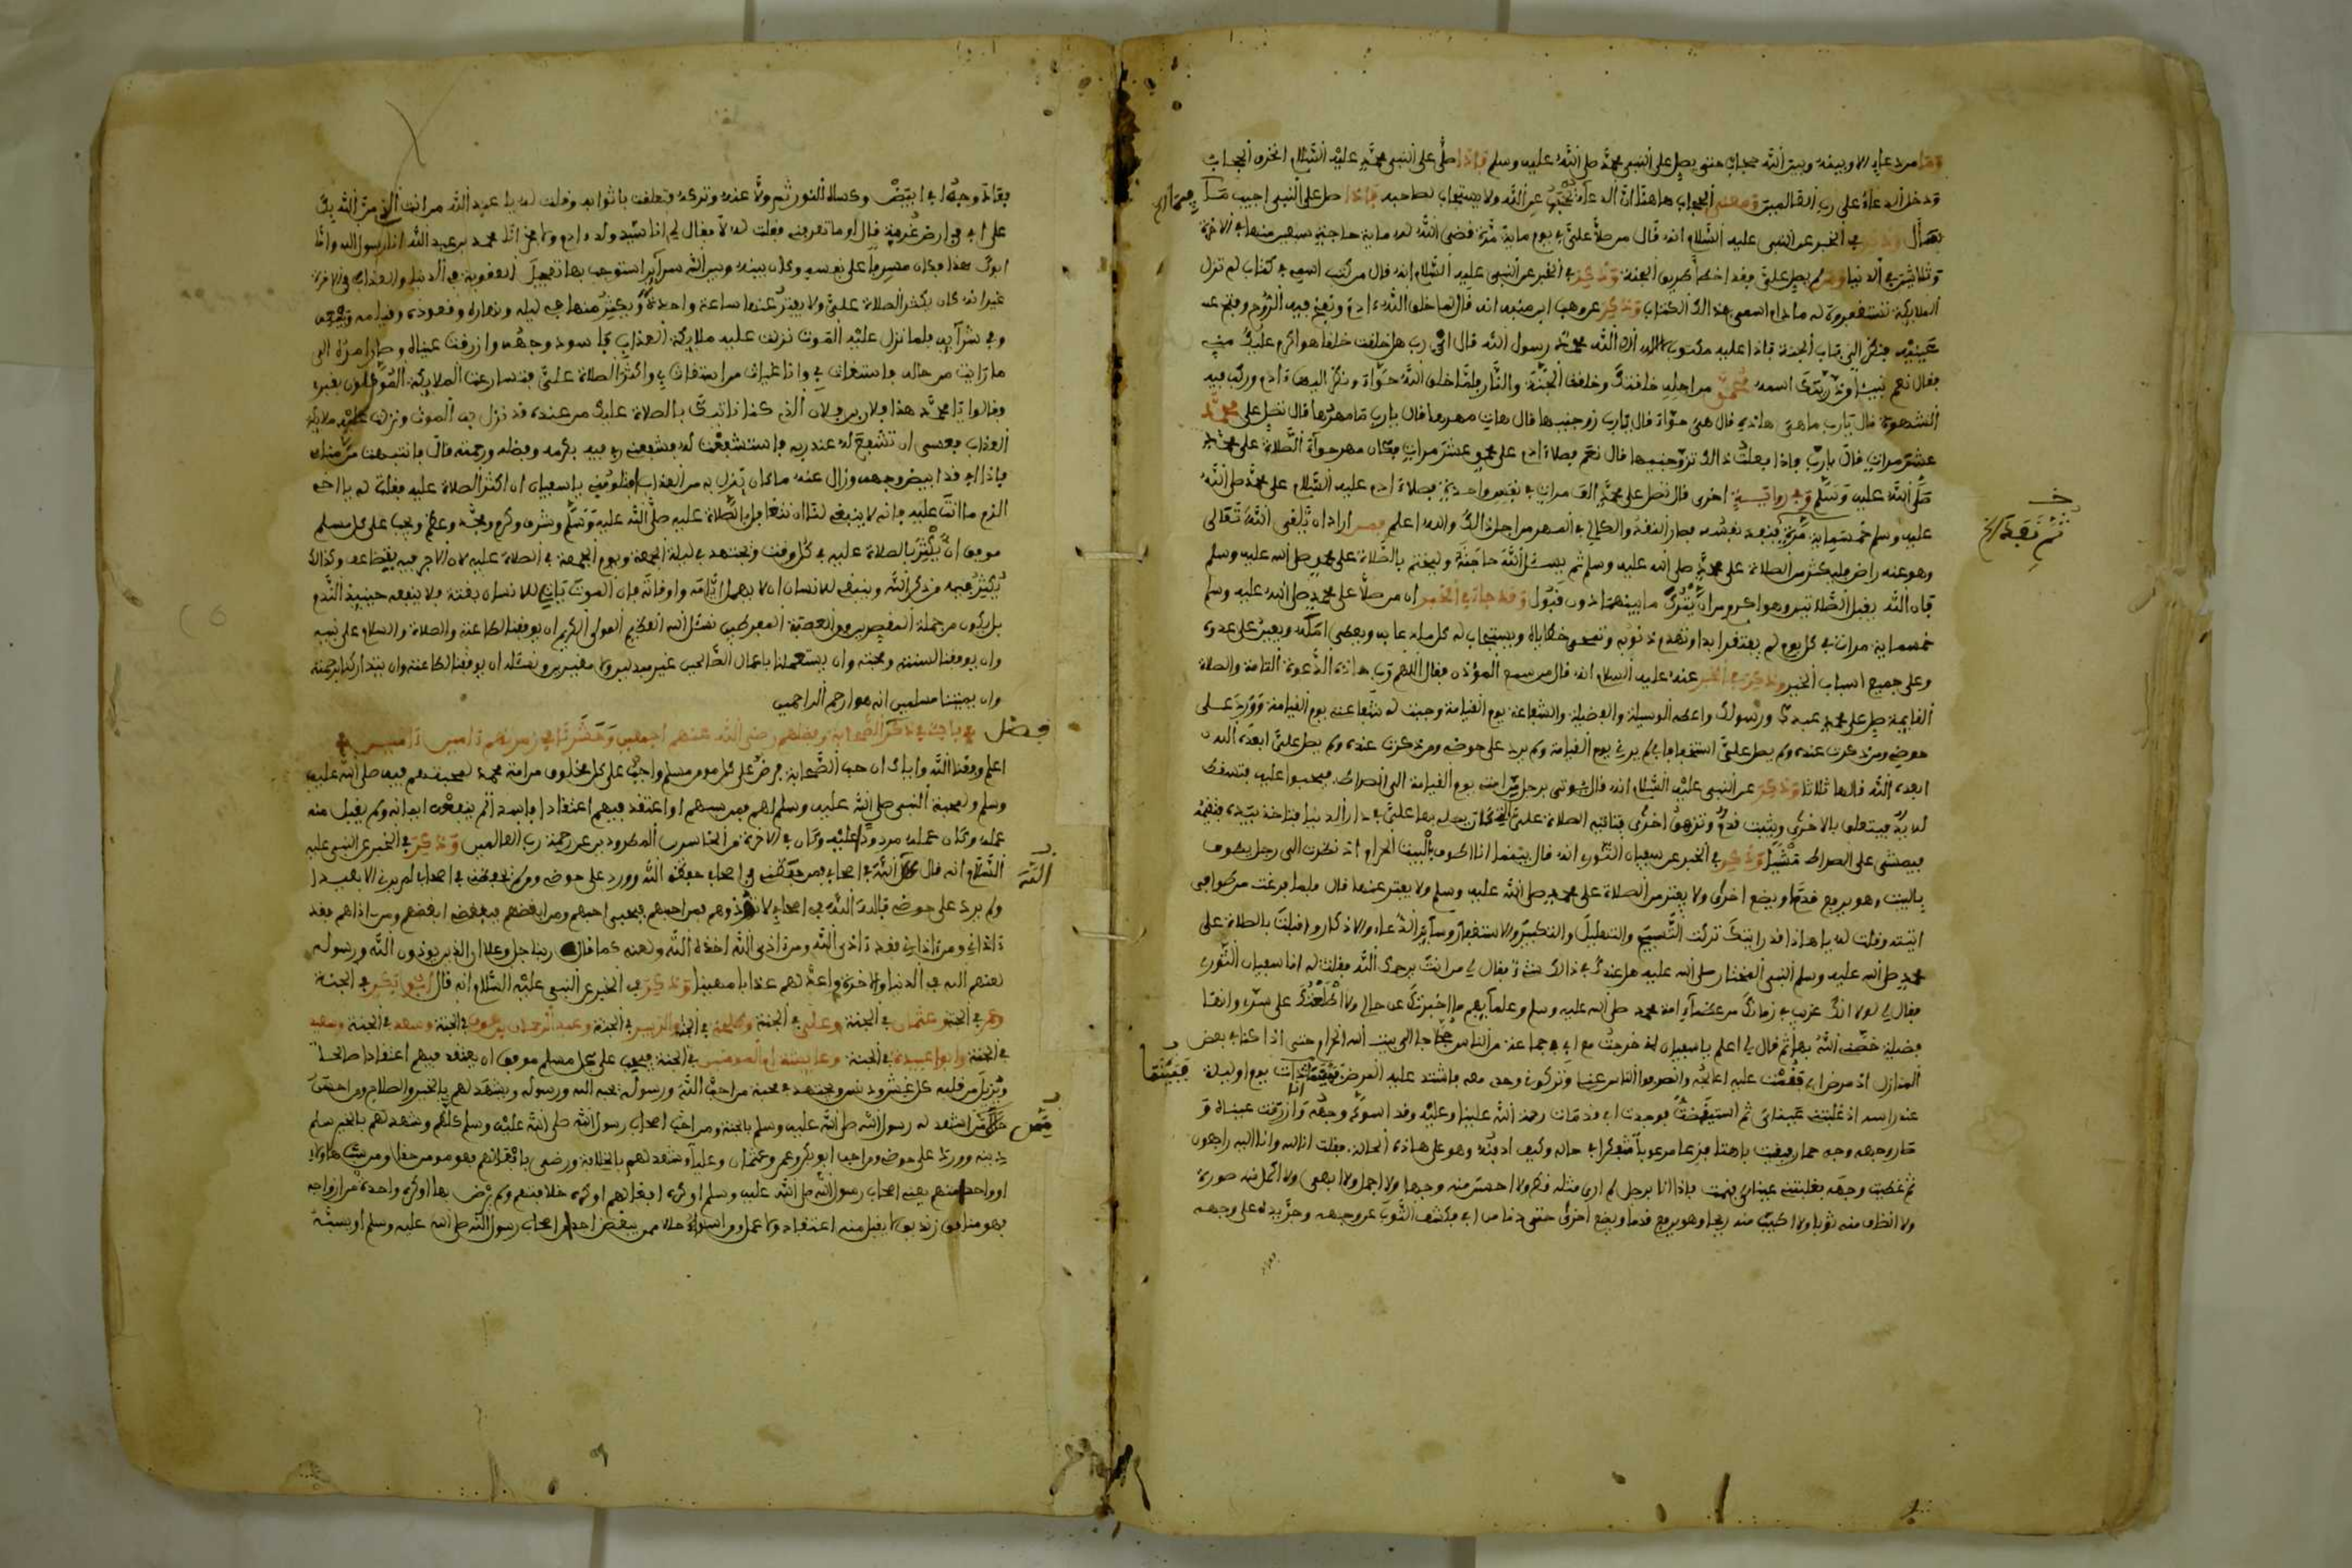 وما من دعاء الا وبينه وبين الله حجاب حتى يصلى على النبي محمد صلى الله عليه وسلم فاذا صلى على النبي محمد عليه السلام انخرق الحجاب
ودخل الدعاء على رب العالمين ومعنى الحجاب هاهنا ان الدعاء يحجب عن الله ولا يستجاب لصاحبه فاذا صلى على النبي اجيب
سأل وذكر في الخبر عن النبي عليه السلام انه قال من صلى علي في يوم ماية مرة قضى الله له ماية حاجة سبعين منها في الاخرة
وثلاثين في الدنيا ومن لم يصل علي فقد اخطأ طريق الجنة وذكر في الخبر عن النبي عليه السلام انه قال من كتب اسمي في كتاب لم تزل
الملايكة تستغفر له ما دام اسمي في ذالك الكتاب وذكر عن وهب ابن منبه انه قال لما خلق الله ءادم ونفخ فيه الروح وفتح
عينيه فنظر الى باب الجنة فاذا عليه مكتوب لا اله الا الله محمد رسول الله قال اي رب هل خلقت خلقا هو اكرم عليك مني
فقال نعم نبيا من ذريتك اسمه محمد من اجله خلقتك وخلقت الجنة والنار فلما خلق الله حواء ونظر اليها ءادم وركب فيه
الشهوة قال يارب ما هي هاذه قال هي حواء قال يارب زوجنيها قال هات مهرها قال يارب ما مهرها قال تصل على محمد
عشر مرات قال يارب واذا فعلت ذالك تزوجنيها قال نعم فصلى ادم على محمد عشر مرات فكان مهر حواء الصلاة على محمد
صلى الله عليه وسلم وفي رواية اخرى قال تصل على محمد الف مرات في نفس واحد فصلى ادم عليه السلام على محمد صلى الله
عليه وسلم خمسماية مرة فبعد نفسه فصار النقد والكالي في المهر من اجل ذالك والله اعلم فمن اراد ان يلقى الله تعالى
ثم نقطع
وهو عنه راض فليكثر من الصلاة على محمد صلى الله عليه وسلم ثم يسئل الله حاجته وليختم بالصلاة على محمد صلى الله عليه وسلم
فان الله يقبل الصلاتين وهو اكرم من ان يترك ما بينهما دون قبول وقد جاء في الخبر ان من صلى على محمد صلى الله عليه وسلم
خمسماية مرات في كل يوم لم يفتقر ابدا وتهدم ذنوبه وتمحى خطاياه ويستجاب له كل ما دعا به ويعطى امله ويعين على عدوه
وعلى جميع اسباب الخير وذكر في الخبر عنه عليه السلام انه قال من سمع المؤذن فقال اللهم رب هاذه الدعوة التامة والصلاة
القايمة صل على محمد عبدك ورسولك واعطه الوسيلة والفضيلة والشفاعة يوم القيامة وجبت له شفاعتي يوم القيامة وورد على
حوضي ومن ذكرت عنده ولم يصل علي استخفافا بي لم يرني يوم القيامة ولم يرد على حوضي ومن ذكرت عنده ولم يصل علي ابعده الله
ابعده الله قالها ثلاثا وذكر عن النبي عليه السلام انه قال يوتى برجل من امتي يوم القيامة الى الصراط فيحبوا عليه فتسقط
له يد فيتعلق بالاخرى ويثبت قدم وتزهق اخرى فتاتيه الصلاة علي التي كان يصليها علي في دار الدنيا فتاخذ بيده فتقيمه
فيمشي على الصراط وذكر في الخبر عن سفيان الثوري انه قال بينما انا اطوف بالبيت الحرام اذ نظرت الى رجل يطوف
بالبيت وهو يرفع قدما ويضع اخرى ولا يفتر من الصلاة على محمد صلى الله عليه وسلم ولا يفتر عنها قال فلما فرغت من طوافي
اتيته وقلت له يا هاذا قد رايتك تركت التسبيح والتهليل والتكبير والاستغفار وسآير الدعاء والاذكار واقبلت بالصلاة على
محمد صلى الله عليه وسلم النبي المختار صلى الله عليه هل عندك في ذالك شيء فقال لي من انت يرحمك الله فقلت له انا سفيان الثوري
فقال لي لولا انك غريب في زمانك من علماء امة محمد صلى الله عليه وسلم وعلمآيهم ما اخبرتك عن حالي ولا اطلعتك على سري وانها
فضيلة خصني الله بها ثم قال لي اعلم يا سفيان اني خرجت مع ابي في جماعة من الناس حجاجا الى بيت الله الحرام حتى اذا كنا في بعض
المنازل اذ مرض ابي فقمت عليه اعالجه وانصرف الناس عنا وتركوني وحدي معه فاشتد عليه المرض فبينما انا ذات يوم او ليلة
عند راسه اذ غلبتني عيناي ثم استيقظت فوجدت ابي قد مات رحمة الله علينا وعليه وقد اسود وجهه وازرقت عيناه و
صار وجهه وجه حمار فبقيت باهتا فزعا مرعوبا متفكرا في حاله وكيف ادفنه وهو على هاذه الحالة فقلت انا لله وانا اليه راجعون
ثم غطيت وجهه فغلبتني عيناي فنمت فاذا انا برجل لم ارى مثله قط ولا احسن منه وجها ولا اجمل ولا ابهى ولا اكمل منه صورة
ولا انظف منه ثوبا ولا اطيب منه ريحا وهو يرفع قدما ويضع اخرى حتى دنا من ابي فكشف الثوب عن وجهه وجر يده على وجهه
فعاد وجه ابي ابيض وكساه النور ثم ولا عنه وتركه فتعلقت باثوابه وقلت له يا عبد الله من انت الذي من الله بك
على ابي في ارض غربة قال او ما تعرفني فقلت له لا فقال لي انا سيد ولد ءادم ولا فخر انا محمد بن عبد الله انا رسول الله وانا
ابوك هذا فكان مسرفا على نفسه وكان بينه وبين الله سرآير استوجب بها تعجيل العقوبة في الدنيا والعذاب في الاخرة
غير انه كان يكثر الصلاة علي ولا يفتر عنها ساعة واحدة ويكثر منها في ليله ونهاره وقعوده وقيامه
وفي سرآيره فلما نزل عليه الموت نزلت عليه ملايكة العذاب فاسود وجهه وازرقت عيناه وصار امره الى
ما رايت من حاله فاستغاث بي وانا غياث من استغاث بي واكثر الصلاة علي فتسارعت الملايكة الموكلون بقبري
وقالوا يا محمد هذا فلان بن فلان الذي كنا ناتيك بالصلاة عليك من عنده قد نزل به الموت ونزلت عليه ملايكة
العذاب فعسى ان تشفع له عند ربه فاستشفعت له فشفعني ربي فيه بكرمه وفضله ورحمته قال فانتبهت من منامي
فاذا ابي قد ابيض وجهه وزال عنه ما كان ينزل به من العذاب افتلومني يا سفيان ان اكثر الصلاة عليه فقلت له يا اخي
الزم ما انت عليه فانه لا ينبغي لنا ان نتغافل الصلاة عليه صلى الله عليه وسلم وشرف وكرم ومجد وعظم ويجب على كل مسلم
موفق ان يكثر بالصلاة عليه في كل وقت ويجتهد في ليلة الجمعة ويوم الجمعة في الصلاة عليه لان الاجر فيه يتضاعف وكذالك
يكثر فيه من ذكر الله وينبغي للانسان ان لا يهمل ايامه واوقاته فان الموت ياتي للانسان بغتة فلا ينفعه حينيذ الندم
بل يكون من جملة المقصرين والعصاة المفرطين نسئل الله العظيم المولى الكريم ان يوفقنا لطاعته والصلاة والسلام على نبيه
وان يوفقنا لسنته ومحبته وان يستعملنا باعمال الصالحين غير مبدلين ولا مغيرين ونسئله ان يوفقنا لطاعته وان يتداركنا برحمته
وان يميتنا مسلمين انه هو ارحم الراحمين
فصل في باب في ذكر الصحابة وفضلهم رضى الله عنهم اجمعين وحشرنا في زمرتهم ءامين ءامين
اعلم وفقنا الله واياك ان حب الصحابة فرض على كل مومن مسلم واجب على كل مخلوق من امة محمد لمحبتهم فيه صلى الله عليه
وسلم ولمحبة النبي صلى الله عليه وسلم لهم فمن سبهم او اعتقد فيهم اعتقادا فاسدا لم ينفعه ايمانه ولم يقبل منه
عمله وكان عمله مردودا عليه وكان في الاخرة من الخاسرين المطرودين عن رحمة رب العالمين وذكر في الخبر عن النبي عليه
السلام انه قال الله الله في اصحابي فمن حفظني في اصحابي حفظه الله وورد على حوضي ومن لم يحفظني في اصحابي لم يرني الا بعيدا
ولم يرد على حوضي فالله الله في اصحابي لا تؤذوهم فمن احبهم فبحبي احبهم ومن ابغضهم فببغضي ابغضهم ومن اذاهم فقد
ءاذاني ومن ءاذاني فقد ءاذى الله ومن ءاذى الله اخذه الله ولعنه كما قال ربنا جل وعلا ان الذين يوذون الله ورسوله
لعنهم الله في الدنيا والاخرة واعد لهم عذابا مهينا وذكر في الخبر عن النبي عليه السلام انه قال ابو بكر في الجنة
وعمر في الجنة وعثمان في الجنة وعلي في الجنة وطلحة في الجنة والزبير في الجنة وعبد الرحمان بن عوف في الجنة وسعد في الجنة وسعيد
في الجنة وابو عبيدة في الجنة وعايشة ام المومنين في الجنة فيجب على كل مسلم موفق ان يعتقد فيهم اعتقادا صالحا
ويزيل من قلبه كل غش ودنس ويجتهد في محبة من احب الله ورسوله يحبه الله ورسوله ويشهد لهم بالخير والصلاح ومن احب
من شهد له رسول الله صلى الله عليه وسلم بالجنة ومن احب اصحاب رسول الله صلى الله عليه وسلم كلهم وشهد لهم بالخير سلم
دينه وورد على حوضه ومن احب ابو بكر وعمر وعثمان وعليا وشهد لهم بالخلافة ورضي بافعالهم فهو مومن حقا ومن سب هاولاء
او واحد منهم يعني اصحاب رسول الله صلى الله عليه وسلم او كره افعالهم او كره خلافتهم ولم يرض بها او كره واحدة من ازواجه
فهو منافق زنديق لا يقبل منه اعتقاد ولا عمل ومن اسوأ حالا ممن يبغض احدا من اصحاب رسول الله صلى الله عليه وسلم او يسبه